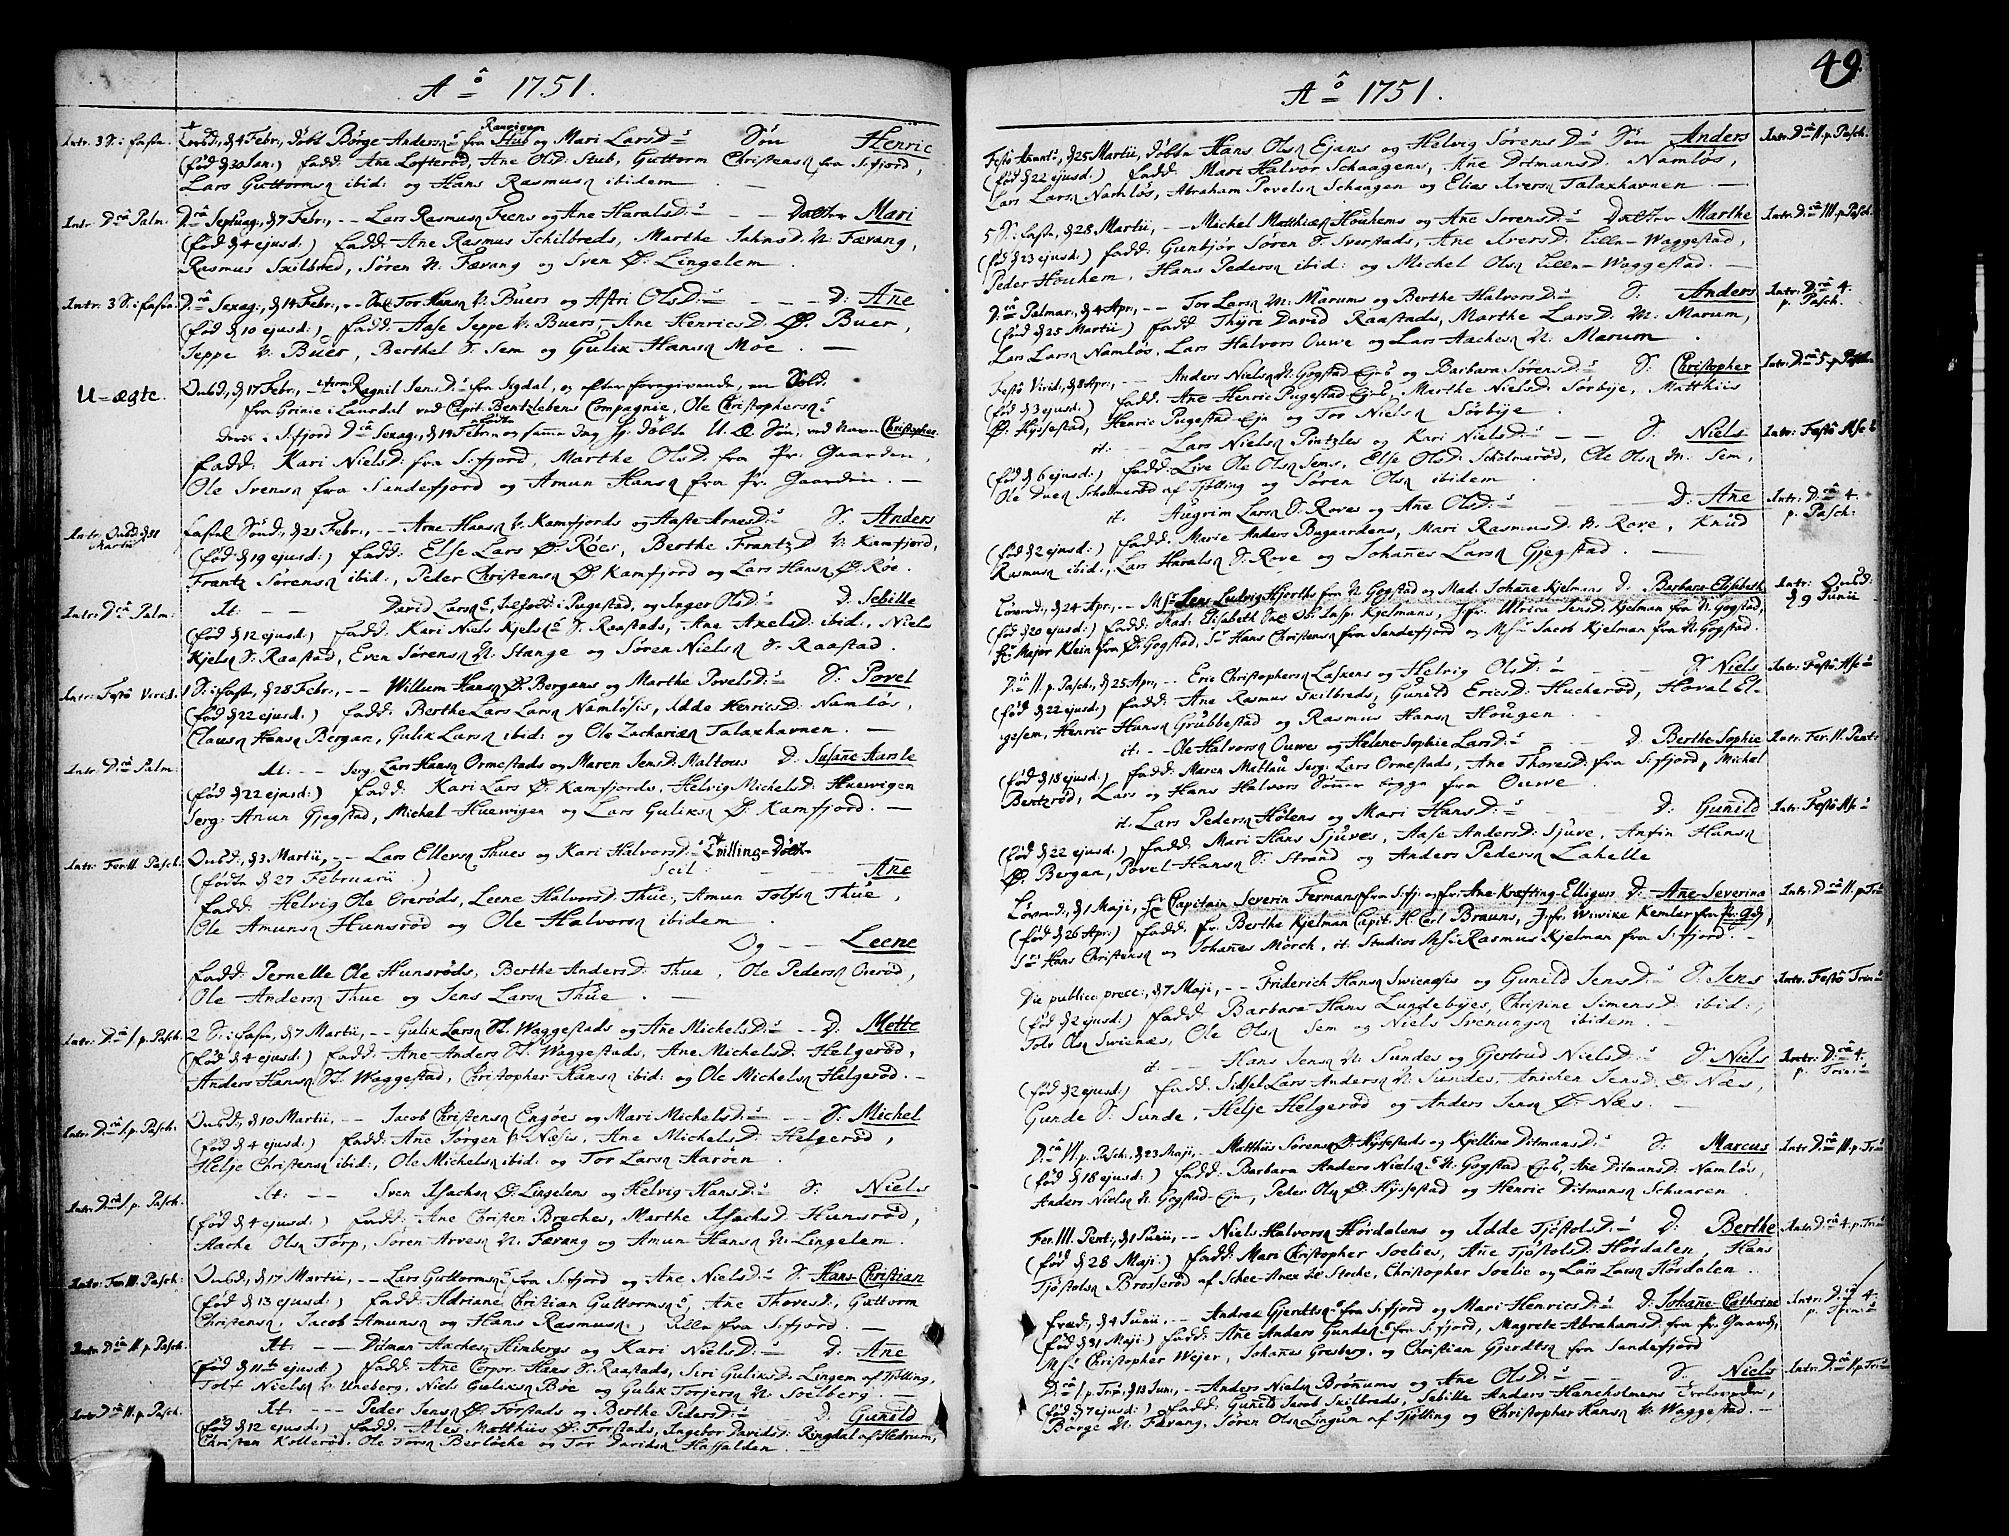 Aô 1751.
Intr. 3 S: i faste. Onsd, d 4 Febr, döbt Börge Andersøs fra Stub og Mari LarsD:s Søn Henric
Ranvigen
(fød d 30 Jan:) fadd: Ane Lofterød, Ane OlsD: Stub, Guttorm Christensn fra Sefjord,
Lars Guttormsn ibid: og Hans Rasmusn ibidem
Intr: Dca Palm. Dca Septuag, d 7 Febr, -- Lars Rasmusn Feens og Ane HaralsD:s -- Datter Mari
(fød d 4 ejusd:) fadd: Ane Rasmus Schilbreds, Marthe JahnsD. N: Fævang,
Rasmus Skilbred, Søren N: Fævang og Sven Ø: Lingelem
Intr: 3 S: i fasten Dca Sexag, d 14 Febr, -- Tor Hansn V: Buers og Astri OlsD:s -- D: Ane
(fød d 10 ejusd:) fadd: Aase Seppe V: Buers, Ane HenricsD: Ø: Buer,
Seppe V: Buer, Berthel S: Sem og Gulik Hansn Moe. —
U-ægte. Onsd, d 17 Febr, Ragnil JensD:s fra Sigdal, og efter foregivende, en Sold.
fra Grinie i Laurdal ved Capit: Bentzlebens Compagnie, Ole Christophersns
deres i Sefjord Dca Sexag, d 14 Febr: og samme dag hj: döbte U. Æ. Søn, ved Navn Christopher
fødte
fadd: Kari NielsD: fra Sefjord, Marthe OlsD: fra Pr: Gaarden,
Ole Svensn fra Sandefjord og Amun Hansn fra Pr. Gaarden. —
Intr. Onsd. d 31 Martii fastel Sönd, d 21 Febr, -- Arne Hansn V: Kamfjords og Aaste ArnesD:s S: Anders
(fød d 19 ejusd:) fadd: Else Lars Ø: Röes, Berthe FrantzD V: Kamfjord,
Frantz Sørensn ibid:, Peder Christensn Ø: Kamfjord og Lars Hansn Ø: Röe.
Intr: Dca Palm: It: -- David Larsns, i Pugestad, og Inger OlsD:s D: Sebille
(fød d 12 ejusd:) fadd: Kari Niels Kjelsns S: Raastads, Ane AxelsD: ibid:, Niels
Kjelsn S: Raastad, Even Sørensn N: Stange og Søren Nielsn S: Raastad.
Intr: Festo Virid. 1 S: i faste, d 28 Febr, -- Willum Hansn Ø: Bergans og Marthe PovelsD:s S: Povel
(fød d 22 ejusd:) fadd: Berthe Lars Larsn Namløsis, Idde HenricsD: Namløs,
Claus Hansn Bergan, Gulik Larsn ibid: og Ole Zachariæn Talaxhavnen. —
Intr: Dca Palm: It: -- Serg: Lars Hansn Ormestads og Maren JensD: Maltous D: Susane Karste
(fød d 22 ejusd:) fadd: Kari Lars Ø: Kamfjords, Helvig MichelsD: Huevigen
Serg: Anun Gjegstad, Michel Huevigen og Lars Guliksn Ø: Kamfjord. —
Intr: Fer: II. Pasch: Onsd, d 3 Martii, -- Lars Ellefsn Thues og Kari HalvorsD:s Tvilling-Dött.
(fødte d 27 Februarii) Scil: -- Ane
fadd: Helvig Ole Orerøds, Leene HalvorsD: Thue, Amun Tolfsn Thue,
Ole Amunsn Hunsrød og Ole Halvorsn ibidem
Og -- Leene
fadd: Pernelle Ole Hunsrøds, Berthe AndersD: Thue, Ole Pedersn Orerød,
Ole Andersn Thue og Jens Larsn Thue. —
Intr: Dca I. p. Pasch: 2 S: i faste, d 7 Martii, -- Gulik Larsn St. Waggestads og Ane MichelsD:s -- D: Mette
(fød d 4 ejusd:) fadd: Ane Anders St. Waggestads, Ane MichelsD: Helgerød,
Anders Hansn St. Waggestad, Christopher Hansn ibid: og Ole Michelsn Helgerød.
Intr: Dca I. p. Pasch: Onsd, d 10 Martii, -- Jacob Christensn Engöes og Mari MichelsD:s -- S: Michel
(fød d 4 ejusd:) fadd: Ane Jörgen V: Næsis, Ane MichelsD: Helgerød,
Helje Christensn ibid:, Ole Michelsn ibid: og Tor Larsn Haröen
Intr: Dca I. p. Pasch: It: -- Sven Isachsn Ø: Lingelens og Helvig HansD:s S: Niels
(fød d 4 ejusd:) fadd: Ane Christen Breches, Marthe IsachsD: Hunsrød,
Aache Olsn Torp, Søren Arvesn N: Fævang og Amun Hansn N: Lingelem.
Intr: Fer: III. Pasch: Onsd, d 17 Martii, -- Lars Guttormsns fra Sefjord og Ane NielsD:s S: Hans Christian
(fød d 13 ejusd:) fadd: Adriane Christian Guttormsns, Ane ThoresD:, Guttorm
Christensn, Jacob Amunsn og Hans Rasmusn, fra Sefjord. —
Intr: Dca II. p. Pasch: It: -- Ditman Aachesn Himbergs og Kari NielsD:s -- D: Ane
(fød d 11te ejusd:) fadd: Ane Corpor: Hans S: Raastads, Siri GuliksD: Lingem af Tjölling,
Tolf Nielsn V: Uneberg, Niels Guliksn Böe og Gulik Torjersn N: Soelberg. —
Intr: Dca II. p. Pasch. It: --- Peder Jensn Ø: Forstads og Berthe PedersD:s D: Gunild
(fød d 12 ejusd:) fadd: Ales Matthiis Ø: Forstads, Ingebor DavidsD: Ringdal af Hedrum,
Christen Kollerød, Ole Torsn Berløche og Tor Davidsn Hassalden. —
49
Aô 1751.
Festo Anunt:, d 25 Martii, döbte Hans Olsn Ejans og Helvig SørensD:s Søn Anders Intr: Dca II. p. Pasch.
(fød d 22 ejusd:) fadd: Mari Halvor Schaagens, Ane DitmansD: Namløs,
Lars Larsn Namløs, Abraham Povelsn Schaagen og Elias Iversn Talaxhavnen. —
5 S: faste, d 28 Martii, -- Michel Matthiæsn Houhems og Ane SørensD:s Datter Marthe Intr: Dca III. p. Pasch
(fød d 23 ejusd:) fadd: Gunbjör Søren S: Sverstads, Ane IversD: Lille-Waggestad,
Peder Houhem, Hans Pedersn ibid: og Michel Olsn Lille-Waggestad. —
Dca Palmar, d 4 Apr, -- Tor Larsn M: Marums og Berthe HalvorsD:s S: Anders Intr: Dca 4. p. Pasch:
(fød d 25 Martii) fadd: Thyre David Raastads, Marthe LarsD: M: Marum,
Lars Larsn Namløs, Lars Halvors Ouwe og Lars Aachesn N: Marum.
Festo Virid, d 8 Apr, -- Anders Nielsn N: Gogstad Ejes og Barbara SørensD:s S: Christopher Intr: Dca 5. p. Pasch.
(fød d 3 ejusd:) fadd: Ane Henric Pugestad Ejes, Marthe NielsD: Sörbije, Matthiis
Ø: Hyssestad, Henric Pugestad Eje og Tor Nielsn Sörbije.
it: -- Lars Nielsn Pintzles og Kari NielsD:s -- S: Niels Intr: Festo Asc:s
(fød d 6 ejusd:) fadd: Live Ole Olsn Sems, Else OlsD: Scholmerød, Ole Olsn N: Sem,
Ole Duesn Scholmerød af Tjölling og Søren Olsn ibidem
it: Augrim Larsn S: Roves og Ane OlsD:s -- D: Ane Intr: Dca 4. p. Pasch:
(fød d 2 ejusd:) fadd: Marie Anders Bugaardens, Mari RasmusD. N. Rove, Knud
Rasmusn ibid:, Lars Haralsn S: Rove og Johañes Larsn Gjegstad. —
Löverd:, d 24 Apr, -- Msr Jens Ludvig Hjorths fra N: Gogstad og Mad. Johañe Kjelmans D: Barbara Elisabeth Intr: Onsd: d 9 Junii
(fød d 20 ejusd:) fadd: Mad. Elisabeth Kjelmans, Jfr: Ulrica JensD: Kjelman fra N: Gogstad,
Hr Major Klein fra Ø: Gogstad, Sr Hans Christensn fra Sandefjord og Msr Jacob Kjelman fra N: Gogstad.
Dca II. p. Pasch, d 25 Apr, -- Eric Christophersn Laskens og Helvig OlsD:s -- S Niels Intr: Festo Asc:s
(fød d 22 ejusd:) fadd: Ane Rasmus Skilbreds, Gunild EricsD: Hucherød, Hoval El-
gesem, Henric Hansn Grubbestad og Rasmus Hansn Hougen.
it: -- Ole Halvorsn Ouwes og Helene-Sophie LarsD:s -- D: Berthe-Sophie Intr: Fer. II. Pent:
(fød d 18 ejusd:) fadd: Maren Mattau Serg: Lars Ormestads, Ane ThoresD: fra Sefjord, Michel
Bentzrød, Lars og Hans Halvors Sönner begge fra Ouwe.
it: Lars Pedersn Hölens og Mari HansD:s D: Gunild Intr: Festo Asc:s
(fød d 22 ejusd:) fadd: Mari Hans Sjuves, Aase AndersD: Sjuve, Anfin Hansn
Ø: Bergan, Povel Hansn S: Strand og Anders Pedersn Lahelle
Löverd:, d 1 Maji, Hr Capitain Severin Fermans fra Sefj: og Fr: Ane Kræfting-Elligers D: Ane-Severina Intr: D:ca II. p. Trin
(fød d 26 Apr:) fadd: Fr. Berthe Kjelman Capit: H Carl Brauns, Jfr: Wiwike Kemler fra Pr. Gd,
Sr Hans Christensn og Johañes Mörch, it: Studios Msr Rasmus Kjelman fra Sefjord. —
Die public: prec:, d 7 Maji, -- Friderich Hansn Swienæsis og Gunild JensD:s S: Jens Intr: Festo Trin:s
(fød d 2 ejusd:) fadd: Barbara Hans Lundebyes, Christine SimensD: ibid:,
Tolv Olsn Swienæs, Ole Olsn Sem og Niels Svenungsn ibidem. —
it: -- Hans Jensn N: Sundes og Gjertrud NielsD:s S: Niels Intr: Dca 4. p. Trin:s
(fød d 2 ejusd:) fadd: Sidsel Lars Andersn N: Sundes, Anichen JensD: Ø: Næs,
Gunde S: Sunde, Helje Helgerød og Anders Jensn Ø: Næs. —
Dca VI. p. Pasch: d 23 Maji, -- Matthiis Sørensn Ø: Hyssestads og Kjelline DitmansD:s S: Marcus Intr: Dca II. p. Tri:s
(fød d 18 ejusd:) fadd: Barbara Anders Nielsns N: Gogstad Ejes, Ane DitmansD: Namløs,
Anders Nielsn N: Gogstad-Eje, Peder Olsn Ø: Hyssestad og Henric Ditmansn Schaaren
Fer. III. Pent:, d 1 Junii, -- Niels Halvorsn Hördalens og Idde TjöstolsD:s D: Berthe Intr: Dca 4. p. Tri:s
(fød d 28 Maji) fadd: Mari Christopher Soelies, Ane TjöstolsD: Hördalen, Hans
Tjöstolsn Brosserød af Schee-Anex til Stoche, Christopher Soelie og Lars Larsn Hördalen.
fred:, d 4 Junii, -- Andreas Gjerdtsns fra Sefjord og Mari HenricsD:s D: Johañe-Cathrine Intr: Dca 4. p. Trin:s
(fød d 31 Maji) fadd: Ane Anders Gundesns fra Sefjord, Magrete AbrahamsD: fra Pr. Gaard,
Msr Christopher Wejer, Johañes Gresberg, og Christian Gjerdtsn fra Sandefjord
Dca I. p. Tri:, d 13 Jun:, -- Anders Nielsn Brönums og Ane OlsD:s -- S. Niels Intr: Dca II. p. Tri:s
(fød d 7 ejusd:) fadd: Gunild Jacob Skilbreds, Sebille Anders Haneholmens,
Börge N: Fævang, Søren Olsn Lingum af Tjölling og Christopher Hansn V: Waggestad. —